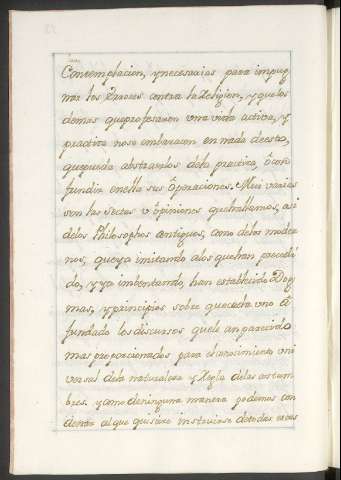 Contemplacion, y necesarias para impug
nar los Errores contra la Religion, y que los
demas que profesaron una vida activa, y
practica no se embarazen en nada de esto,
que pueda abstraerlos de la practica, ò con
fundir en ella sus Operaciones. Mui varias
son las Sectas ù Opiniones que hallamos, asi
de los Philosophos antiguos, como de los moder
nos, que ya imitando a los que han precedi
do, y ya imbentando, han establecido Dog
mas, y principios sobre que cada uno à
fundado los discursos que le an parecido
mas proporcionados para el conosimiento uni
versal de la naturaleza y Regla de las costum
bres. y como de ninguna manera podemos con
denar al que quisiere instruirse de todas estas